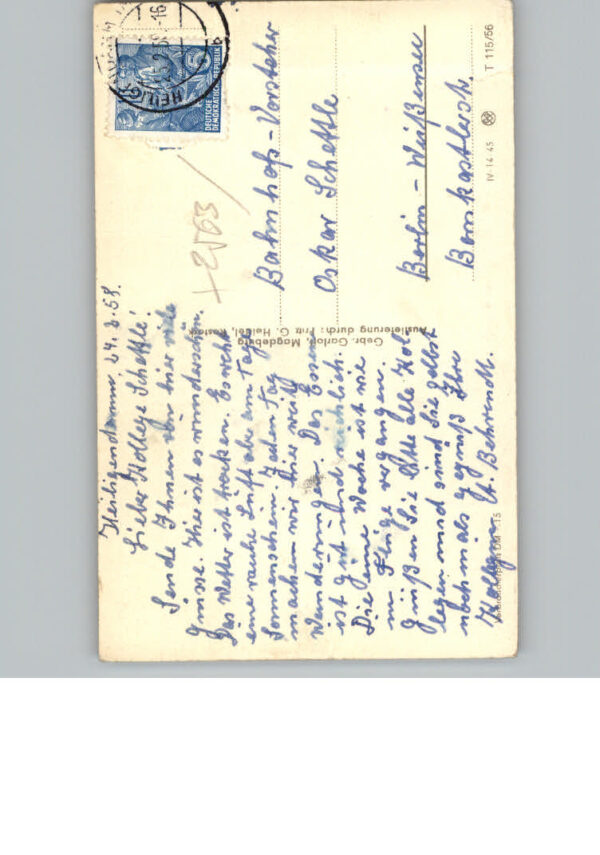 Heiligendamm, 24.2.58.
Lieber Kollege Schettle!
Sende Ihnen von hier viele
Grüsse. Hier ist es wunderschön.
Das Wetter ist trocken. Es weht
eine rauhe Luft aber am Tag
Sonnenschein. Jeden Tag
machen wir hier
Wanderungen. Das Essen
ist gut und reichlich.
Die eine Woche ist wie
im Fluge vergangen.
Grüßen Sie bitte alle Kol-
legen und sind Sie selbst
nochmals gegrüßt Ihre
Kollegin A. Behrendt.
Gebr. Garloff, Magdeburg
Auslieferung durch: Fritz G. Heidel, Rostock
DEUTSCHE
DEMOKRATISCHE REPUBLIK
5
HEILIGENDAMM
-16
+2563
Bahnhofs-Vorsteher
Oskar Schettle
Berlin-Weißensee
Bernkastlerstr.
IV-14-45
T 115/56